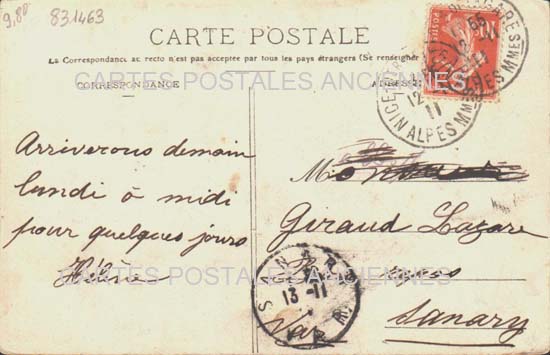 9,80 831463
CARTE POSTALE
La Correspondance au recto n'est pas acceptée par tous les pays étrangers (Se renseigner
CARTES POSTALES ANCIENNES
CORRESPONDANCE
ADRESSE
Arriverons demain
lundi à midi
pour quelques jours
Hélène
Giraud Lazare
Sanary
Var
CARTES POSTALES ANCIENNES
13 -11
ALPES MMES
12
11